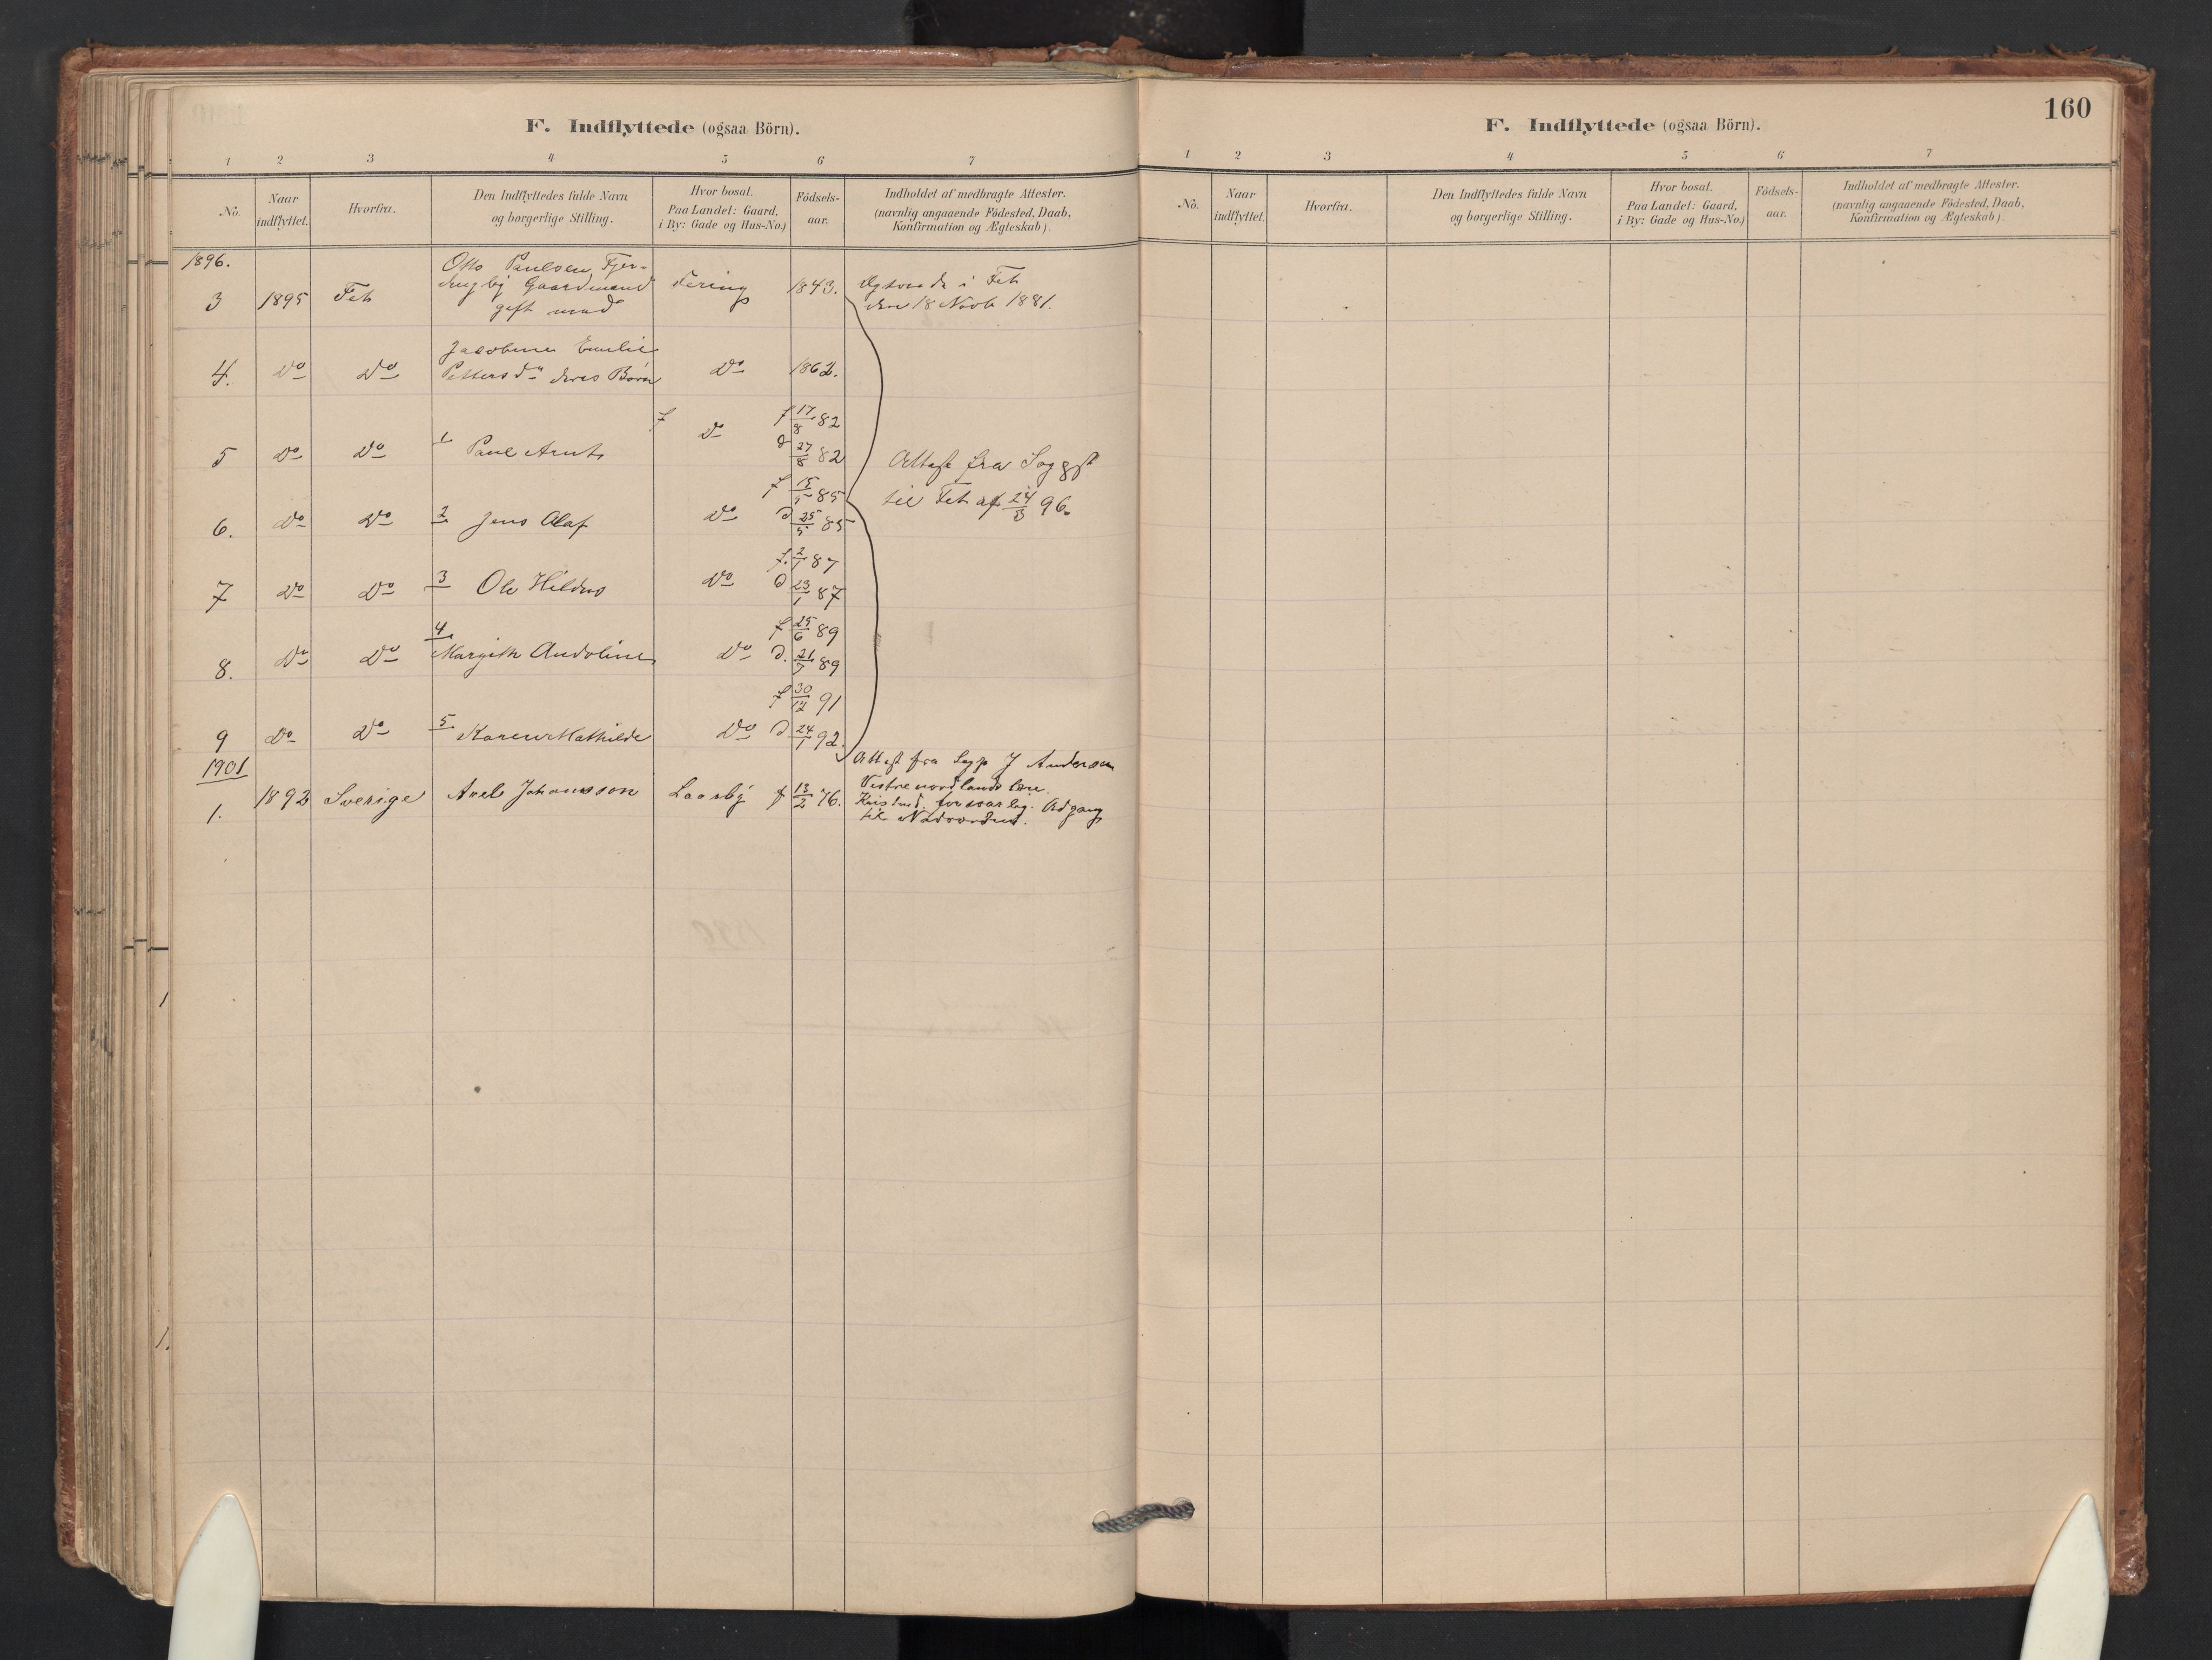 F. Indflyttede (ogsaa Börn).
1 2 3 4 5 6 7
No. Naar indflyttet. Hvorfra. Den Indflyttedes fulde Navn og borgerlige Stilling. Hvor bosat. Paa Landet: Gaard, i By: Gade og Hus-No.) Födsels-aar. Indholdet af medbragte Attester. (navnlig angaaende Födested, Daab, Konfirmation og Ægteskab).
1896.
Otto Paulsen Fjer-
3 1895 Fet dingby Gaardmand 1843. Ægtevede i Fet
gift med den 18 Novb 1881.
Jacobine Emilie
4. Do Do Pettersdr deres Børn Do 1862.
f 17/8 82
5 Do Do 1 Paul Arnt Do d 27/8 82
Attest fra Sogpst
f 15/5 85
til Fet af 24/3 96.
6. Do Do 2 Jens Olaf Do d 25/5 85
f. 2/1 87
7 Do Do 3 Ole Hildus Do d 23/1 87
4 f 25/6 89
8. Do Do Margith Andoline Do d. 21/7 89
f 30/12 91
9 Do Do 5 Karen Mathilde Do d 24/1 92.
1901
Attest fra Sogp J Anderson
Vestrenordlands læn.
1. 1892 Sverige Axel Johansson Laasby f 13/2 76.
Kristend. forsvarlig. Adgang
til Nadverden.
160
F. Indflyttede (ogsaa Börn).
1 2 3 4 5 6 7
No. Naar indflyttet. Hvorfra. Den Indflyttedes fulde Navn og borgerlige Stilling. Hvor bosat. Paa Landet: Gaard, i By: Gade og Hus-No.) Födsels-aar. Indholdet af medbragte Attester. (navnlig angaaende Födested, Daab, Konfirmation og Ægteskab).